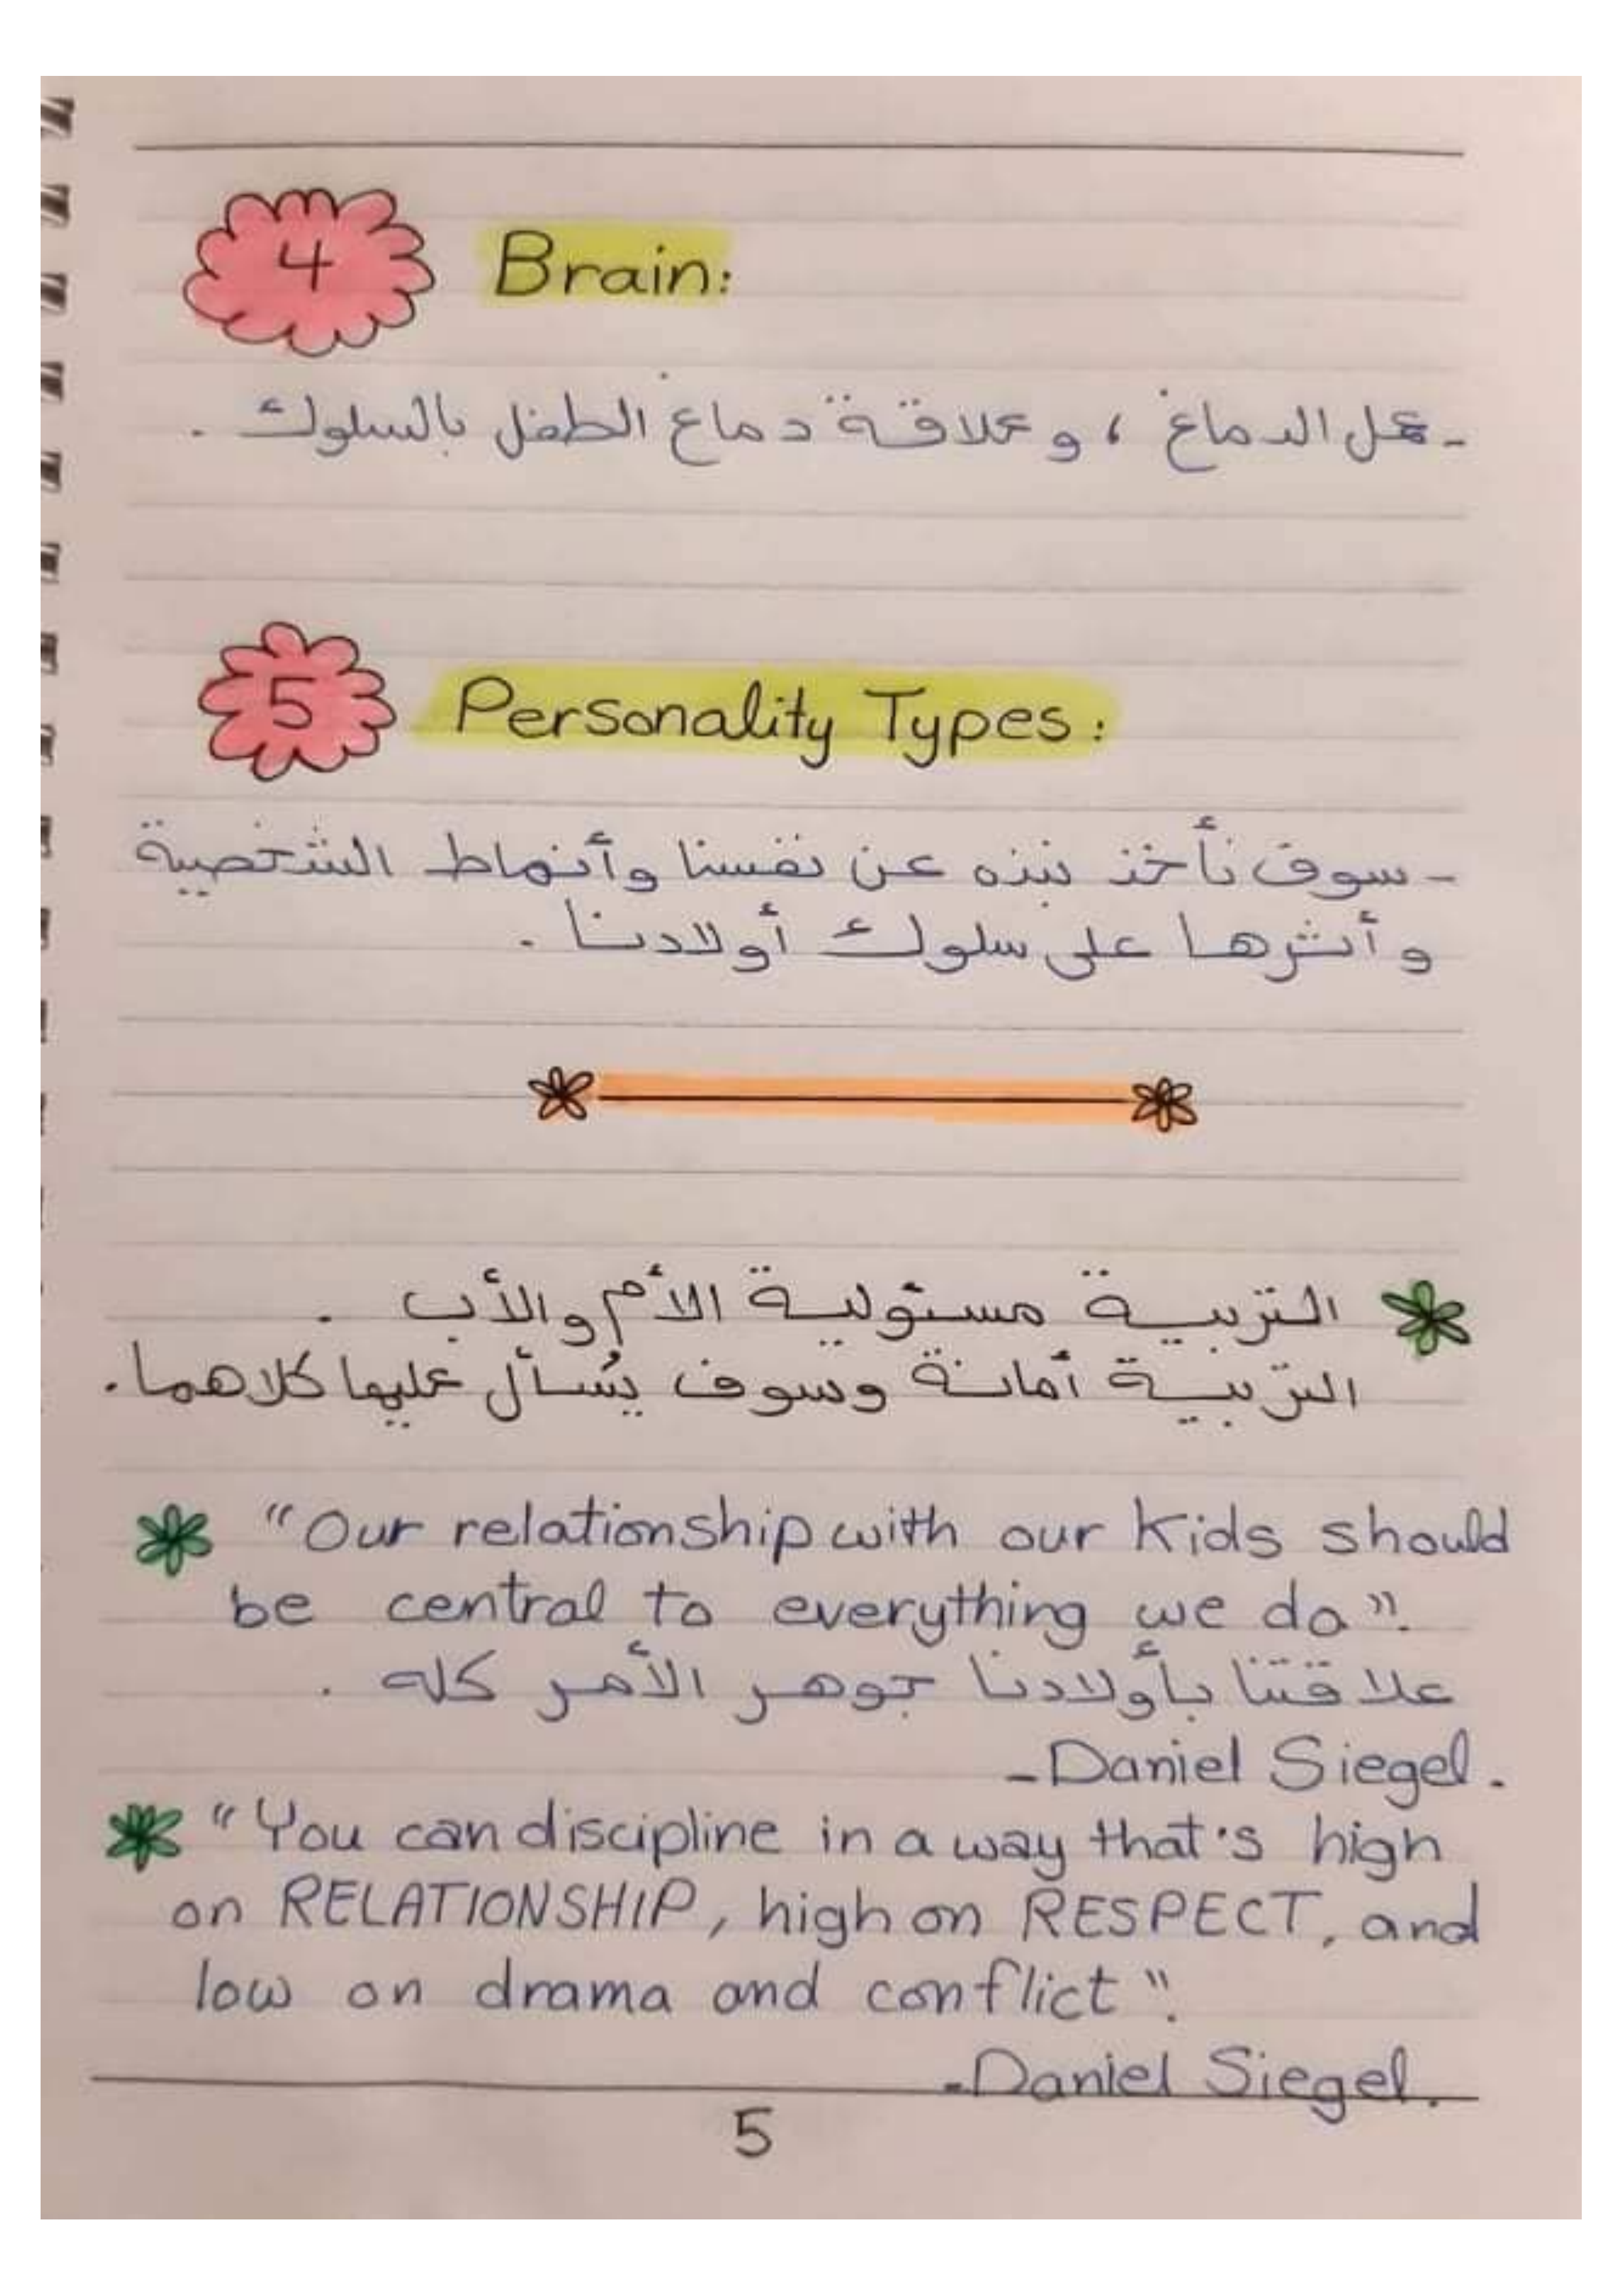 4 Brain:
- عمل الدماغ ، وعلاقة دماغ الطفل بالسلوك .
5 Personality Types:
- سوف نأخذ نبذه عن نفسنا وأنماط الشخصية
وأثرها على سلوك أولادنا .
التربية مسئولية الأم والأب .
التربية أمانة وسوف يُسأل عليها كلاهما.
"Our relationship with our kids should
be central to everything we do".
علاقتنا بأولادنا جوهر الأمر كله .
- Daniel Siegel.
"You can discipline in a way that's high
on RELATIONSHIP, high on RESPECT, and
low on drama and conflict".
- Daniel Siegel.
5